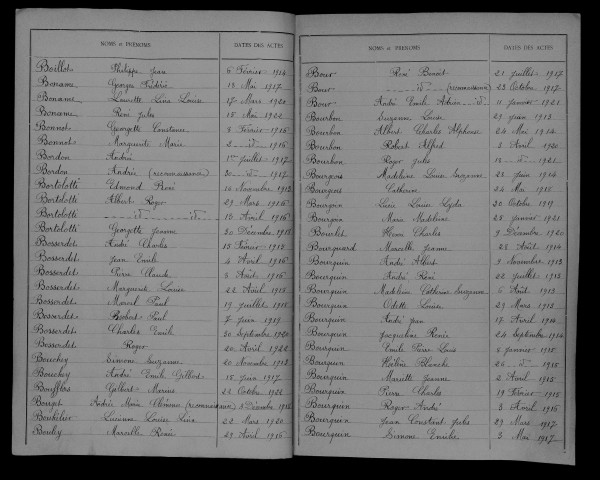 NOMS et PRÉNOMS DATES DES ACTES
Boillot Philippe Jean 6 Février 1914
Boname Georges Frédéric 13 Mai 1917
Boname Lucette Lina Louise 17 Mars 1920
Boname René Jules 15 Mai 1922
Bonnet Georgette Constance 3 Février 1916
Bonnot Marguerite Marie 2 -d°- 1916
Bordon Andrée 1er Juillet 1917
Bordon Andrée (reconnaissance) 30 -d°- 1917
Bortolotti Edmond René 16 Novembre 1912
Bortolotti Albert Roger 29 Mars 1916
Bortolotti -d°- -d°- 13 Avril 1916
Bortolotti Georgette Jeanne 30 Décembre 1918
Bosserdet André Charles 15 Février 1913
Bosserdet Jean Emile 4 Avril 1916
Bosserdet Pierre Claude 3 Août 1916
Bosserdet Marguerite Louise 22 Avril 1915
Bosserdet Marcel Paul 19 Juillet 1918
Bosserdet Robert Paul 7 Juin 1919
Bosserdet Charles Emile 30 Septembre 1920
Bosserdet Roger 20 Avril 1922
Bouchey Simone Suzanne 20 Novembre 1913
Bouchey André Emile Gilbert 15 Juin 1917
Boufflos Gilbert Marius 22 Octobre 1922
Bouget Andrée Marie Clémence (reconnaissance) 3 Décembre 1918
Bouhélier Lucienne Louise Lina 22 Mars 1920
Bouley Marcelle Renée 29 Avril 1916
NOMS et PRÉNOMS DATES DES ACTES
Bour René Benoit 21 Juillet 1917
Bour -d°- (reconnaissance) 23 Octobre 1917
Bour André Emile Adrien -d°- 11 Janvier 1921
Bourbon Suzanne Louise 29 Juin 1913
Bourbon Albert Charles Alphonse 24 Mai 1914
Bourbon Robert Alfred 3 Avril 1920
Bourbon Roger Jules 13 -d°- 1921
Bourgeois Madeleine Louise Suzanne 23 Juin 1914
Bourgeois Catherine 24 Mai 1918
Bourgoin Lucie Louise Lydia 30 Octobre 1919
Bourgoin Marie Madeleine 28 Janvier 1921
Bourlet Henri Charles 9 Décembre 1920
Bourguard Marcelle Jeanne 28 Août 1914
Bourguin André Albert 9 Novembre 1913
Bourguin André René 22 Juillet 1913
Bourguin Madeleine Catherine Suzanne 6 Août 1913
Bourguin Odette Louise 29 Mars 1913
Bourguin André Jean 17 Avril 1914
Bourguin Jacqueline Renée 24 Septembre 1914
Bourguin Emile Pierre Louis 8 Janvier 1915
Bourguin Hélène Blanche 26 -d°- 1915
Bourguin Mariette Jeanne 2 Avril 1915
Bourguin Pierre Charles 19 Février 1915
Bourguin Roger André 3 Avril 1916
Bourguin Jean Constant Jules 29 Mars 1917
Bourguin Simone Emilie 3 Mai 1917